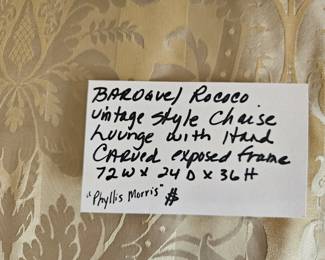 BAROQUE/ ROCOCO
vintage style Chaise
Lounge with Hand
CARVED exposed frame
72W x 24D x 36H
"Phyllis Morris" $